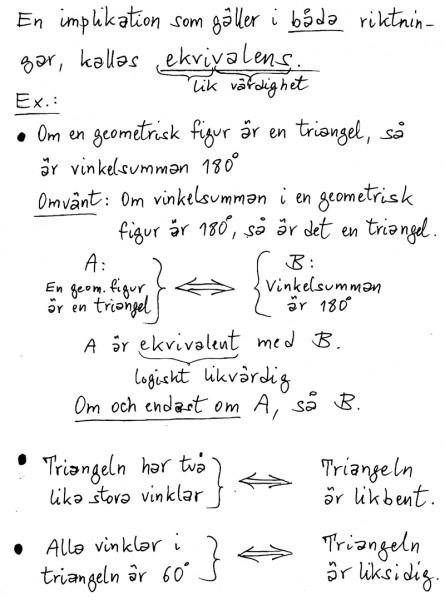 En implikation som gäller i båda riktnin-
gar, kallas ekvivalens.
lik värdighet
Ex.:
• Om en geometrisk figur är en triangel, så
är vinkelsumman 180°
Omvänt: Om vinkelsumman i en geometrisk
figur är 180°, så är det en triangel.
A: B:
En geom. figur är en triangel } ⟺ { Vinkelsumman är 180°
A är ekvivalent med B.
logiskt likvärdig
Om och endast om A, så B.
• Triangeln har två } ⟺ Triangeln
lika stora vinklar är likbent.
• Alla vinklar i } ⟺ Triangeln
triangeln är 60° är liksidig.